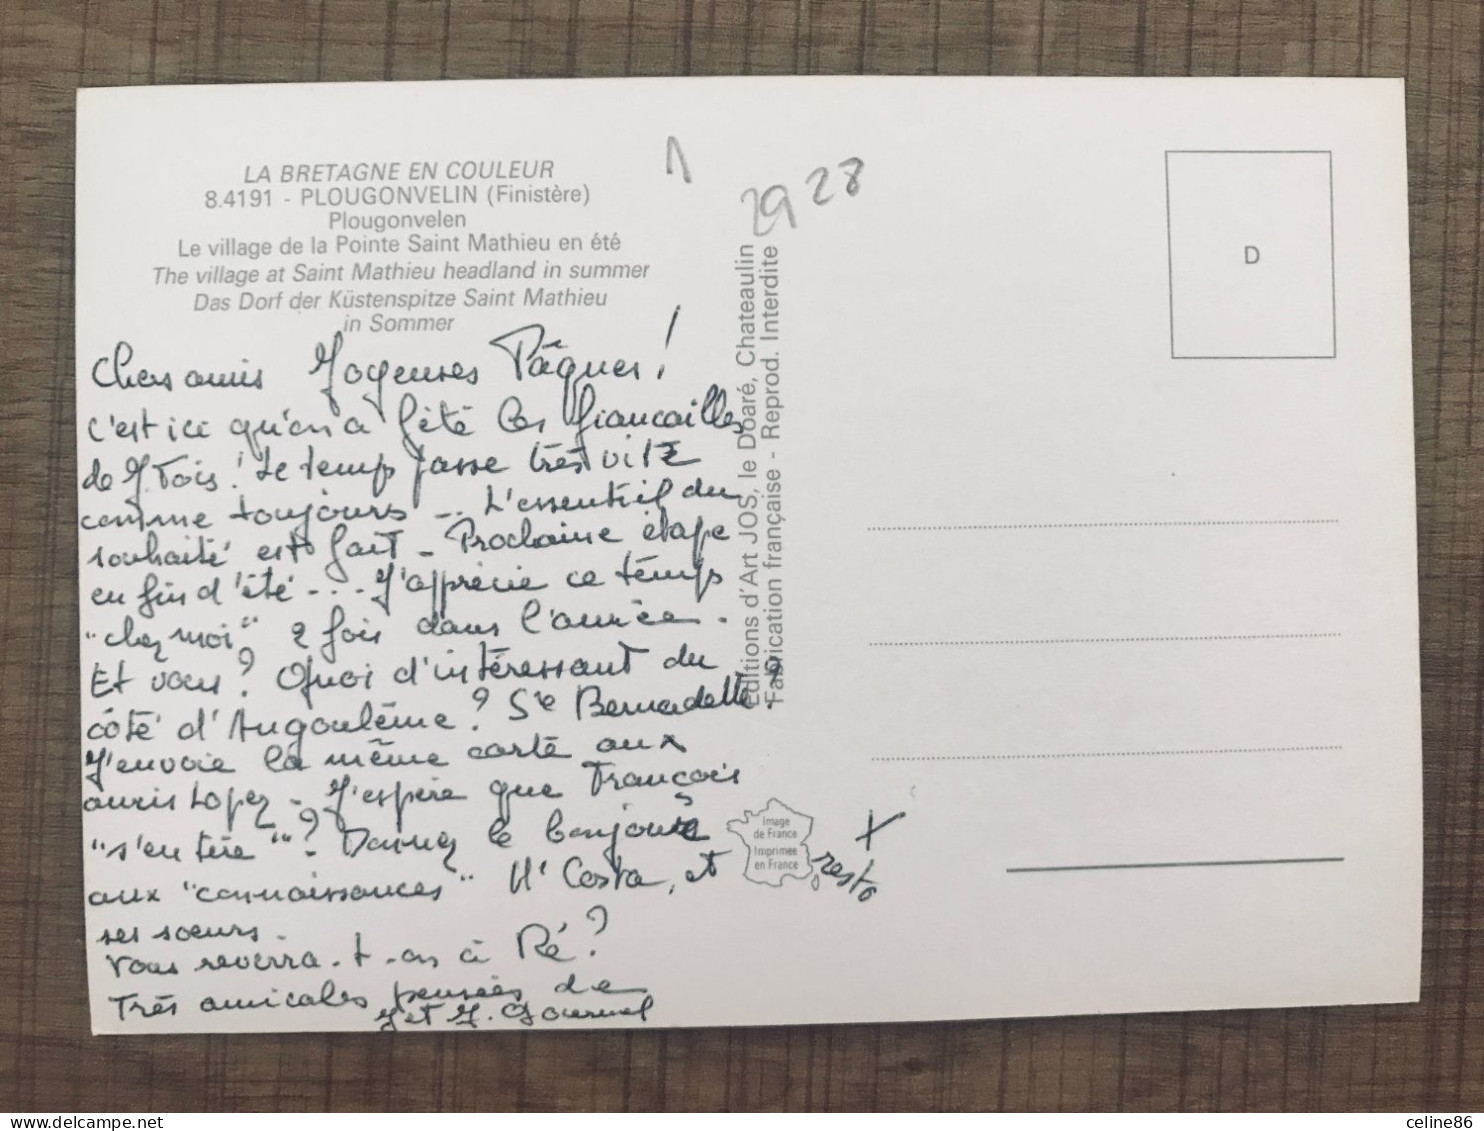 LA BRETAGNE EN COULEUR
8.4191 - PLOUGONVELIN (Finistère)
Plougonvelen
Le village de la Pointe Saint Mathieu en été
The village at Saint Mathieu headland in summer
Das Dorf der Küstenspitze Saint Mathieu
in Sommer
1
29 28
Chers amis Joyeuses Pâques !
c'est ici qu'on a fêté les fiancailles
de J. Fois ! Le temps passe très vite
comme toujours ... L'essentiel du
souhaité est fait - Prochaine étape
en fin d'été .... J'apprécie ce temps
"chez moi" 2 fois dans l'année.
Et vous ? Quoi d'intéressant du
côté d'Angoulême ? Ste Bernadette ?
J'envoie la même carte aux
amis Lopez - J'espère que François
"s'en tire" ? Donnez le bonjour
aux "connaissances" Mr Costa, et
ses soeurs.
Vous reverra-t-on à Ré ?
Très amicales pensées de
J et J.
+
resto
Editions d'Art JOS, le Doaré, Chateaulin
Fabrication française - Reprod. Interdite
Image
de France
Imprimée
en France
D
celine86